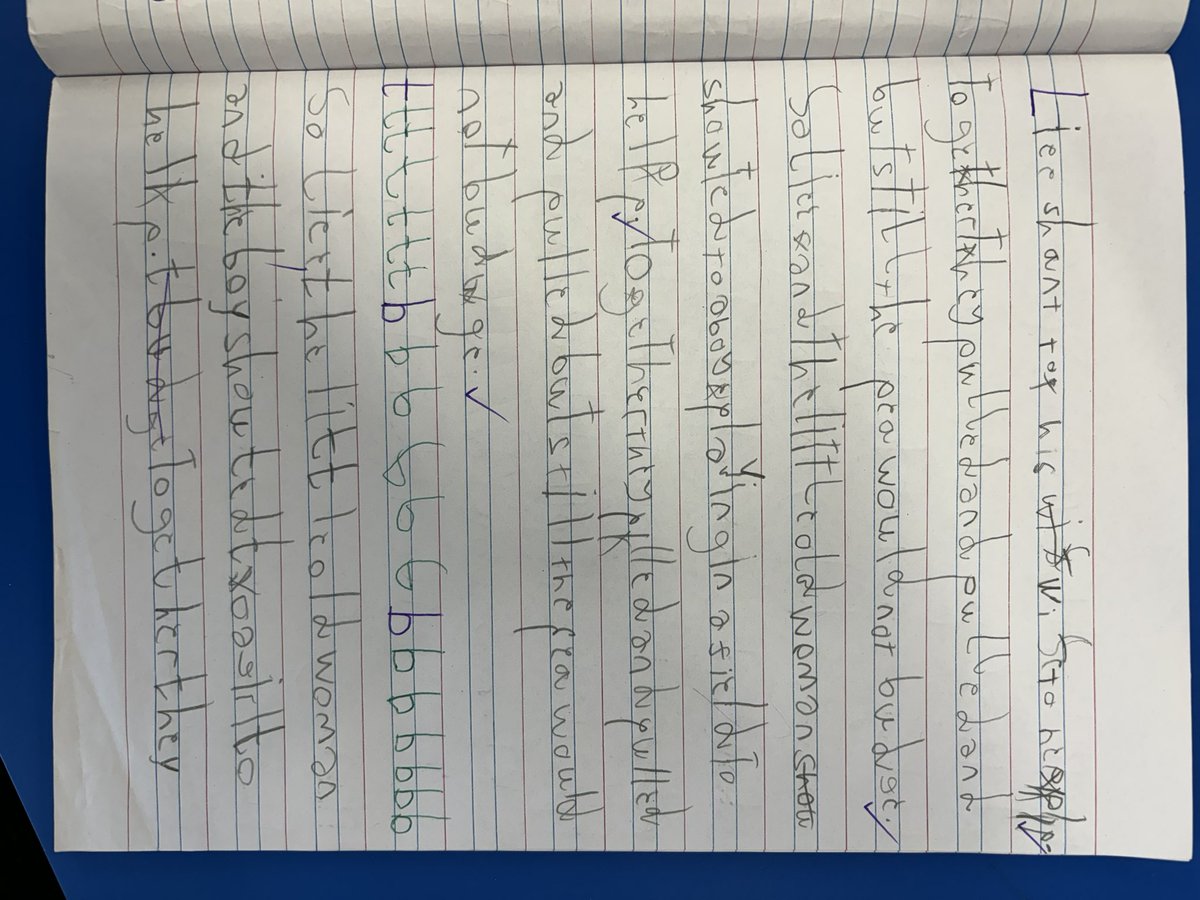 Liee shant tox his wifi Sto help.
together they pulled and pulled and
but still the pea would not budge.
So lieexand the little old woman
showted to a boy playing in a field to
help. Together they pulled and pulled
and pulled but still the pea would
not budge.
ttttttt b b b b b b b b b b b b
So Lieet he littl e old woman
and the boy showted to a girl to
help. Together they